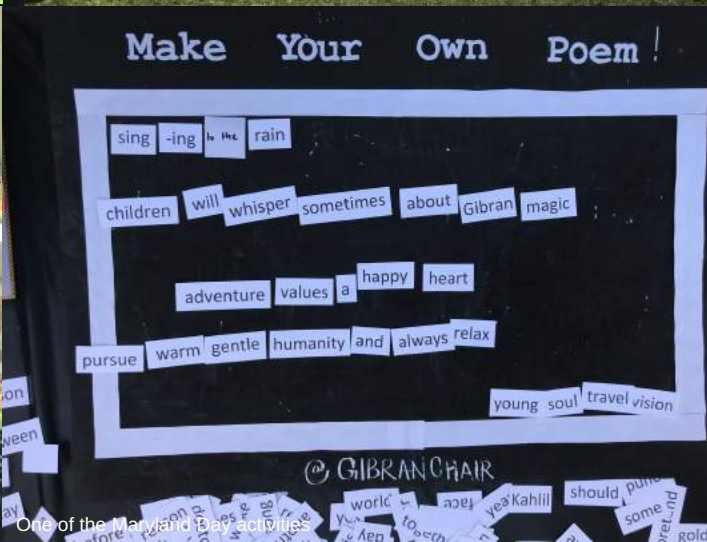 Make Your Own Poem!
sing -ing to the rain
children will whisper sometimes about Gibran magic
adventure values a happy heart
pursue warm gentle humanity and always relax
young soul travel vision
@GIBRANCHAIR
world face yea Kahlil should
some
day gold
One of the Maryland Day activities